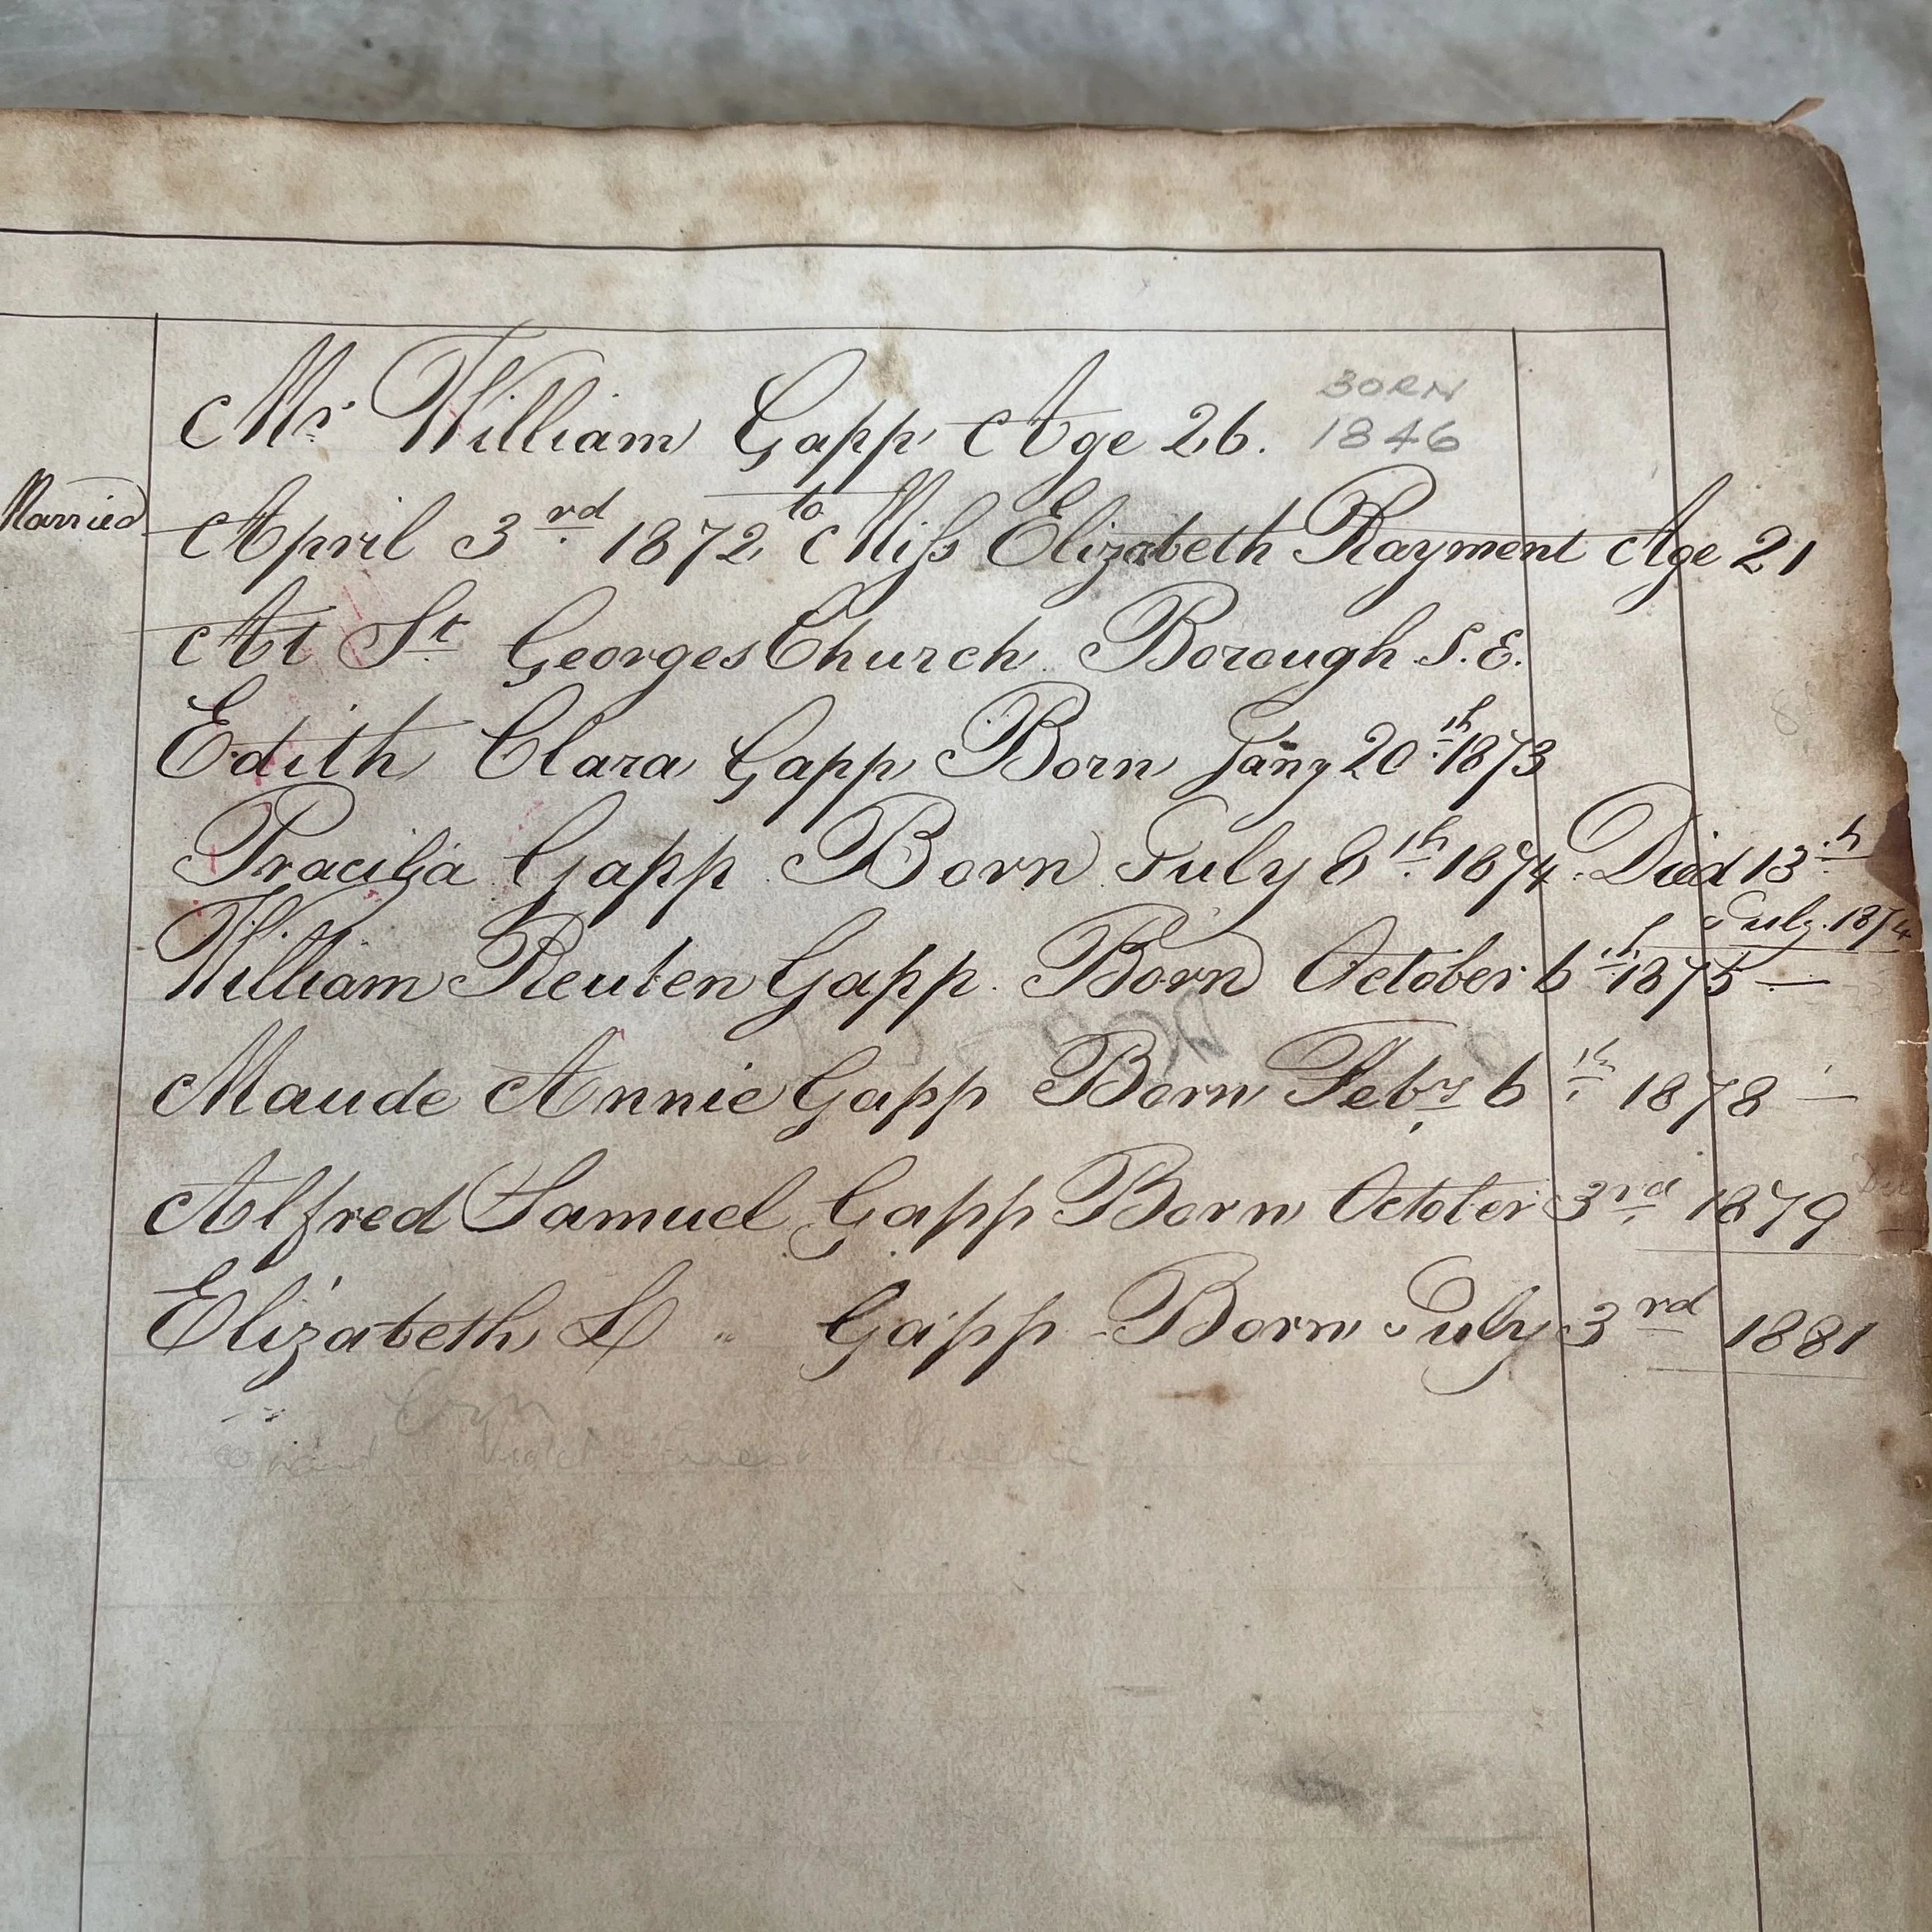 Mr. William Gapp Age 26. BORN 1846
Married April 3rd 1872 to Miss Elizabeth Rayment Age 21
At St Georges Church Borough S.E.
Edith Clara Gapp Born Jany 20th 1873
Gapp Born July 8th 1874. Died 13th
July. 1874
William Reuben Gapp. Born October 6th 1875 —
Maude Annie Gapp Born Feby 6th 1878 —
Alfred Samuel Gapp Born October 3rd 1879
Elizabeth L " Gapp - Born July 3rd 1881